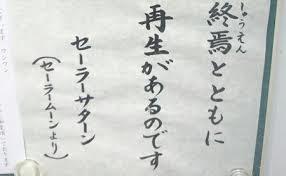 終焉とともに
しゅうえん
再生があるのです
セーラーサターン
（セーラームーンより）